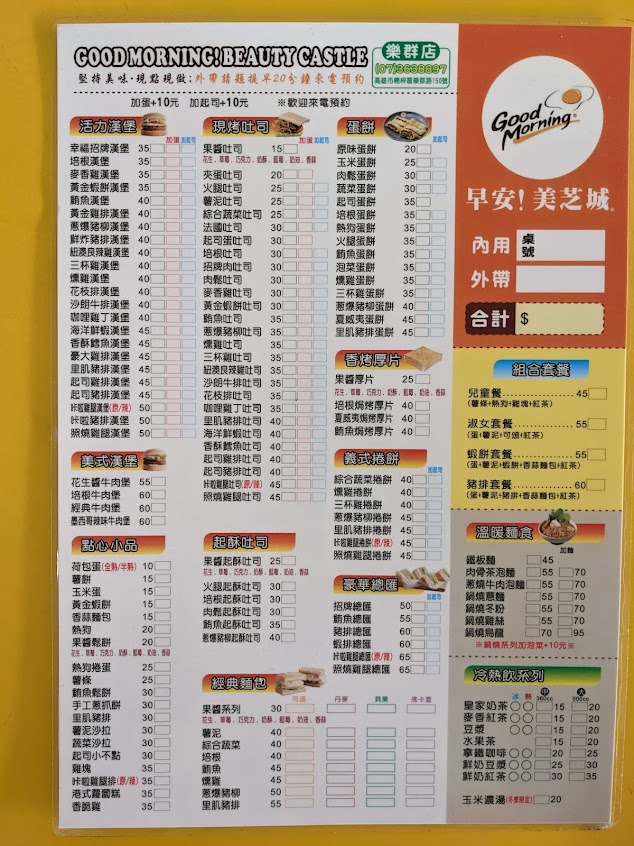 GOOD MORNING! BEAUTY CASTLE
堅持美味·現點現做;外帶請盡提早20分鐘來電預約
樂群店
(07)3638897
高雄市楠梓區樂群路150號
加蛋+10元 加起司+10元 ※歡迎來電預約
活力漢堡
加蛋 加起司
幸福招牌漢堡 35
培根漢堡 35
麥香雞漢堡 35
黃金蝦餅漢堡 35
鮪魚漢堡 40
黃金雞排漢堡 40
蔥爆豬柳漢堡 40
鮮炸豬排漢堡 40
紐澳良辣雞漢堡 40
三杯雞漢堡 40
燻雞漢堡 40
花枝排漢堡 40
沙朗牛排漢堡 40
咖哩雞丁漢堡 40
海洋鮮蝦漢堡 45
香酥鱈魚漢堡 45
豪大雞排漢堡 45
里肌豬排漢堡 45
起司雞排漢堡 45
起司豬排漢堡 45
咔啦雞腿漢堡(原/辣) 50
咔啦豬排漢堡 50
照燒雞腿漢堡 50
美式漢堡
花生醬牛肉堡 55
培根牛肉堡 60
經典牛肉堡 60
墨西哥辣味牛肉堡 60
點心小品
荷包蛋(全熟/半熟) 10
薯餅 15
玉米蛋 15
黃金蝦餅 15
香蒜麵包 15
熱狗 20
果醬鬆餅 20
花生、草莓、巧克力、奶酥、藍莓、奶油、香蒜
熱狗捲蛋 25
薯條 25
鮪魚鬆餅 30
手工蔥抓餅 30
里肌豬排 30
薯泥沙拉 30
蔬菜沙拉 30
起司小不點 30
雞塊 35
咔啦雞腿排(原/辣) 35
港式蘿蔔糕 35
香脆雞 35
現烤吐司
加蛋 加起司
果醬吐司 15
花生、草莓、巧克力、奶酥、藍莓、奶油、香蒜
夾蛋吐司 20
火腿吐司 25
薯泥吐司 25
綜合蔬菜吐司 25
法國吐司 30
起司蛋吐司 30
培根吐司 30
招牌肉吐司 30
肉鬆吐司 30
麥香雞吐司 30
黃金蝦餅吐司 30
蔥爆豬柳吐司 35
鮪魚吐司 35
燻雞吐司 35
三杯雞吐司 35
紐澳良辣雞吐司 35
沙朗牛排吐司 35
花枝排吐司 35
咖哩雞丁吐司 35
里肌豬排吐司 40
海洋鮮蝦吐司 40
香酥鱈魚吐司 40
起司雞排吐司 40
起司豬排吐司 40
咔啦雞腿吐司(原/辣) 45
照燒雞腿吐司 45
起酥吐司
果醬起酥吐司 25
花生、草莓、巧克力、奶酥、藍莓、奶油、香蒜
火腿起酥吐司 30
培根起酥吐司 30
肉鬆起酥吐司 30
鮪魚起酥吐司 35
蔥爆豬柳起酥吐司 40
經典麵包
可頌 丹麥 貝果 佛卡夏
果醬系列 30
花生、草莓、巧克力、奶酥、藍莓、奶油、香蒜
薯泥 40
綜合蔬菜 40
培根 40
鮪魚 45
燻雞 45
蔥爆豬柳 50
里肌豬排 55
蛋餅
加起司
原味蛋餅 20
玉米蛋餅 25
肉鬆蛋餅 30
蔬菜蛋餅 30
起司蛋餅 35
培根蛋餅 35
熱狗蛋餅 35
火腿蛋餅 35
鮪魚蛋餅 35
泡菜蛋餅 35
燻雞蛋餅 35
三杯雞蛋餅 35
蔥爆豬柳蛋餅 40
夏威夷蛋餅 40
里肌豬排蛋餅 45
香烤厚片
果醬厚片 25
花生、草莓、巧克力、奶酥、藍莓、奶油、香蒜
培根焗烤厚片 40
夏威夷焗厚片 40
鮪魚焗烤厚片 40
義式捲餅
加起司
綜合蔬菜捲餅 40
燻雞捲餅 40
三杯雞捲餅 40
蔥爆豬柳捲餅 45
里肌豬排捲餅 45
咔啦雞腿捲餅(原/辣) 45
照燒雞腿捲餅 45
豪華總匯
加起司
招牌總匯 50
鮪魚總匯 55
豬排總匯 60
蝦排總匯 60
咔啦雞腿總匯(原/辣) 65
照燒雞腿總匯 65
Good Morning®
早安!美芝城®
內用 桌號
外帶
合計 $
組合套餐
兒童餐 45
(薯條+熱狗+雞塊+紅茶)
淑女套餐 55
(蛋+薯泥+可頌+紅茶)
蝦餅套餐 55
(蛋+薯泥+蝦餅+香蒜麵包+紅茶)
豬排套餐 60
(蛋+薯泥+豬排+香蒜麵包+紅茶)
溫暖麵食
加麵
鐵板麵 45
肉骨茶泡麵 55 70
蔥燒牛肉泡麵 55 70
鍋燒意麵 55 70
鍋燒冬粉 55 70
鍋燒雞絲 55 70
鍋燒烏龍 70 95
※鍋燒系列加泡菜+10元※
冷熱飲系列
冰 熱 中 360cc 大 500cc
皇家奶茶 15 20
麥香紅茶 15 20
豆漿 15 20
水果茶 15 20
拿鐵咖啡 20 25
鮮奶豆漿 25 30
鮮奶紅茶 30 35
玉米濃湯(冬季限定) 20